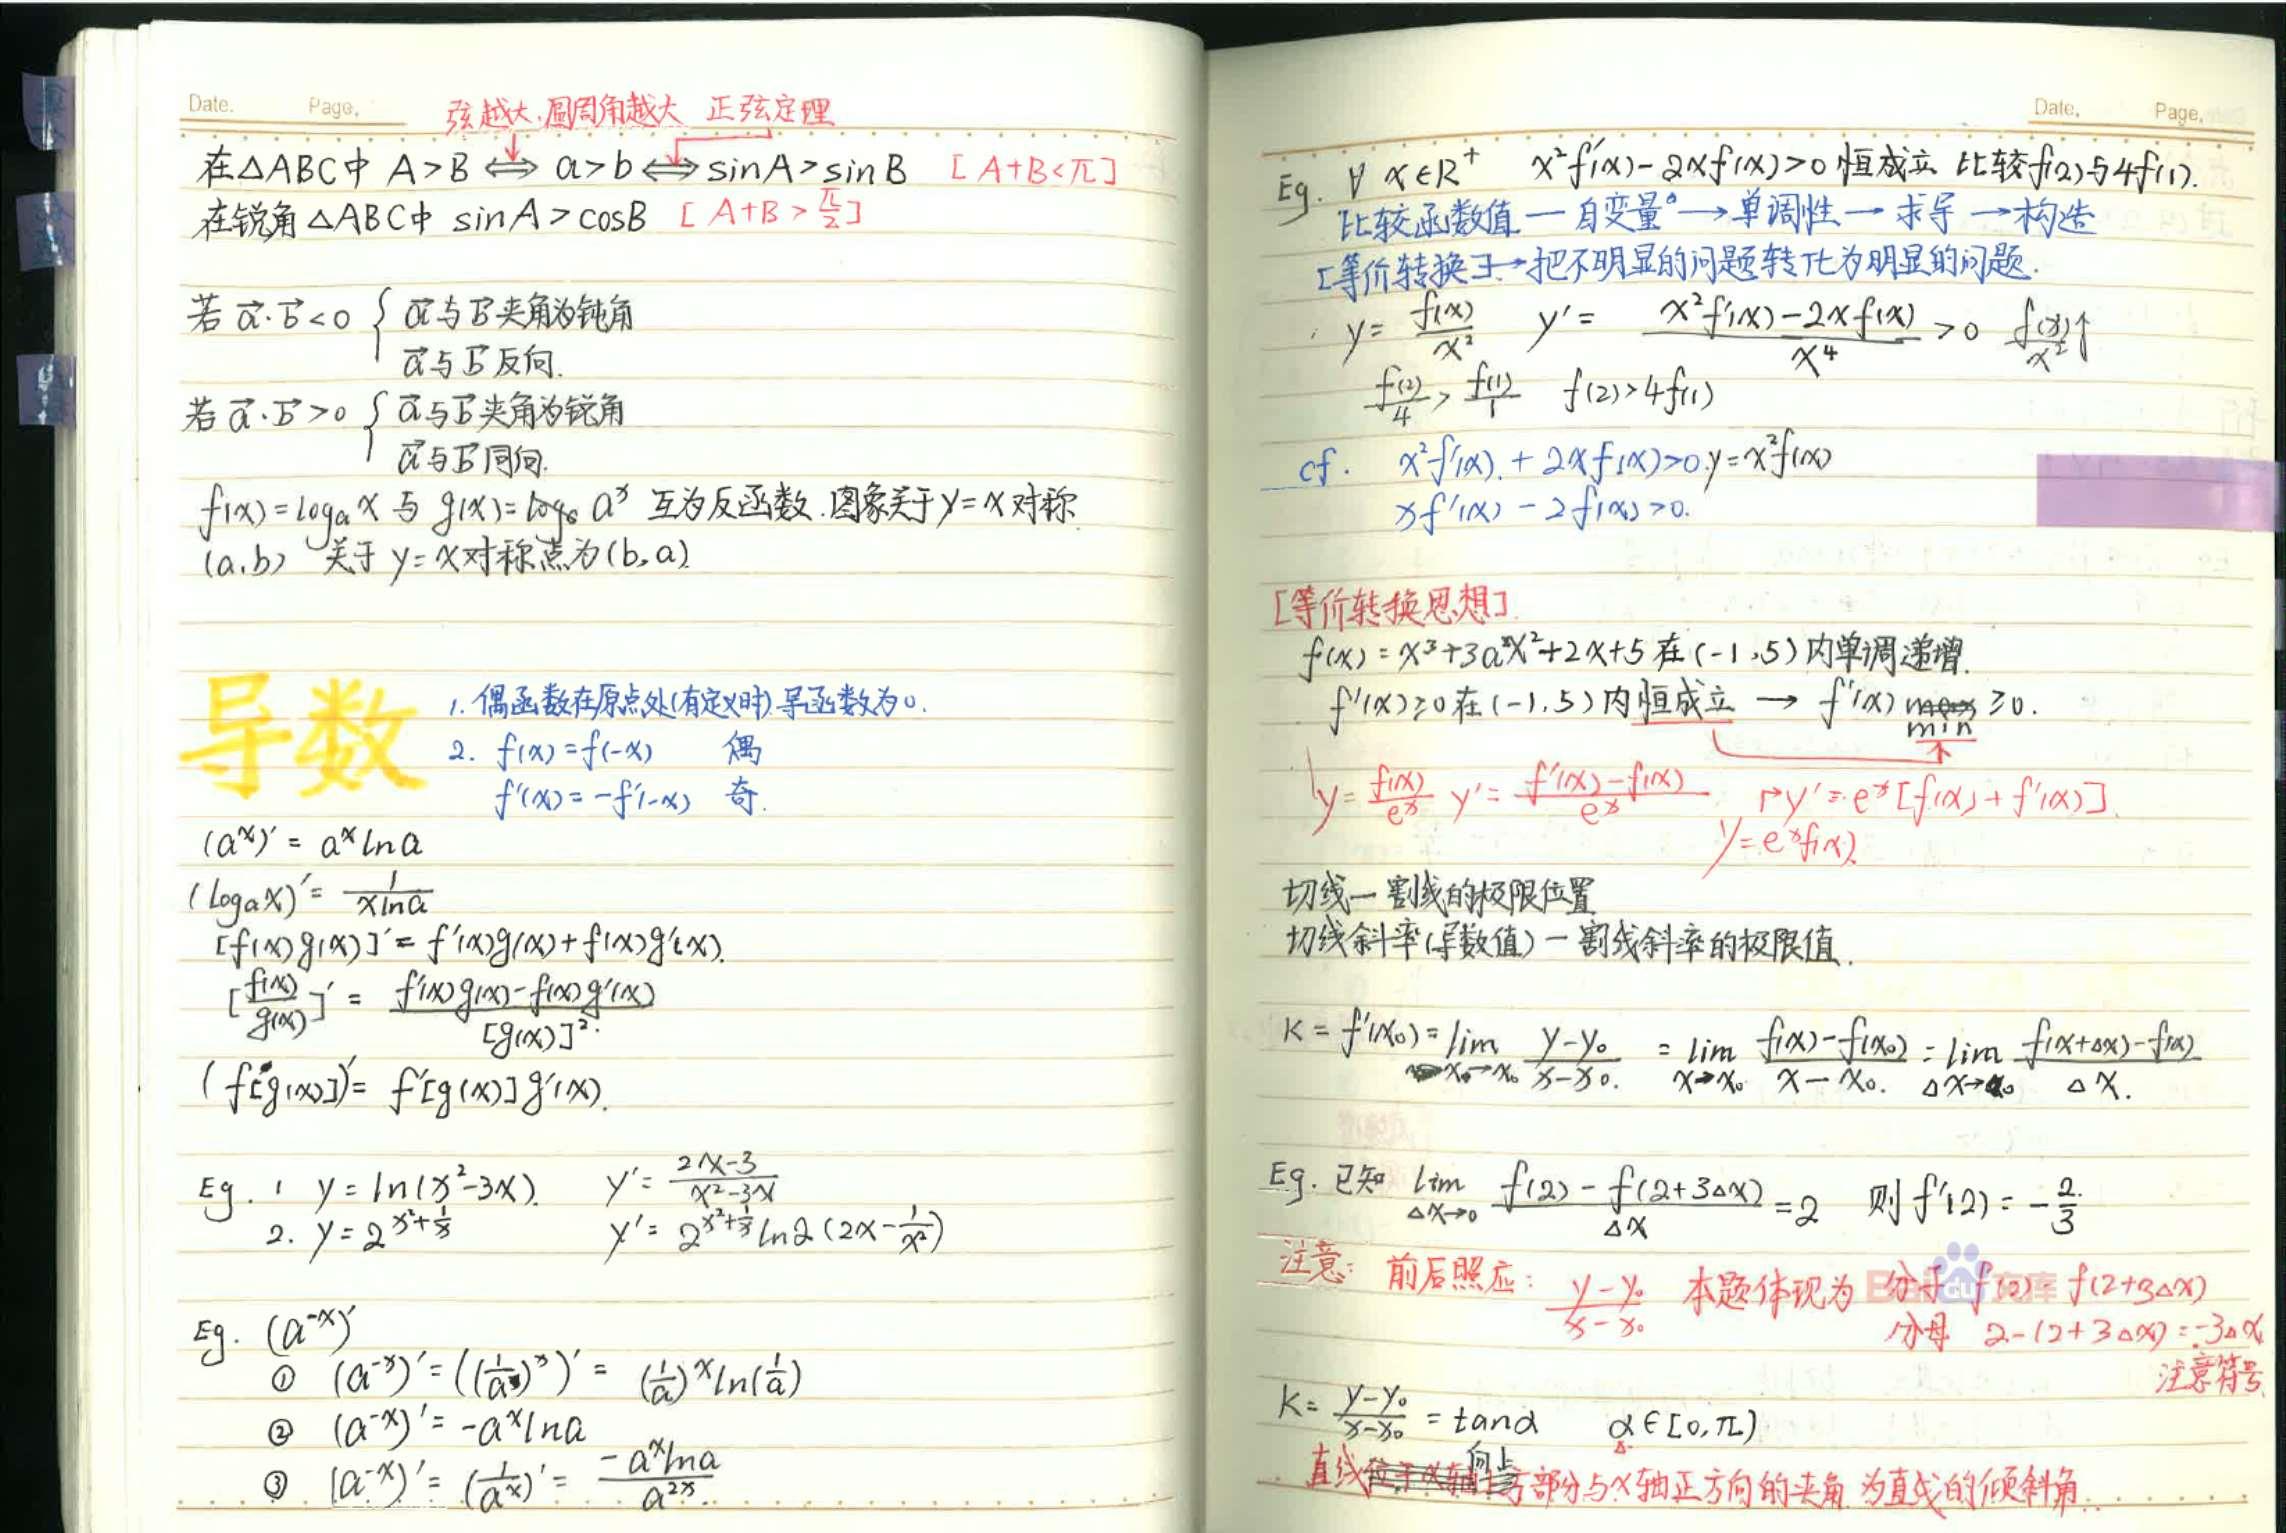 Date. Page.
弦越大,圆周角越大 正弦定理
在△ABC中 A>B ⟺ a>b ⟺ sinA>sinB [A+B<π]
在锐角△ABC中 sinA>cosB [A+B>π/2]
若 a⃗·b⃗<0 { a⃗与b⃗夹角为钝角
a⃗与b⃗反向.
若 a⃗·b⃗>0 { a⃗与b⃗夹角为锐角
a⃗与b⃗同向.
f(x)=logₐx 与 g(x)= aˣ 互为反函数.图象关于y=x对称
(a,b) 关于 y=x对称点为(b,a)
导数
1. 偶函数在原点处(有定义时)导函数为0.
2. f(x)=f(-x) 偶
f'(x)=-f'(-x) 奇.
(aˣ)'= aˣlna
(logₐx)'= 1/(xlna)
[f(x)g(x)]'= f'(x)g(x)+f(x)g'(x).
[f(x)/g(x)]'= (f'(x)g(x)-f(x)g'(x))/[g(x)]².
(f[g(x)])'= f'[g(x)]g'(x).
Eg. 1 y=ln(x²-3x). y'= (2x-3)/(x²-3x)
2. y=2^(x²+1/x) y'= 2^(x²+1/x)ln2(2x-1/x²)
Eg. (a⁻ˣ)'
① (a⁻ˣ)'=((1/a)ˣ)'= (1/a)ˣln(1/a)
② (a⁻ˣ)'= -aˣlna
③ (a⁻ˣ)'= (1/aˣ)'= (-aˣlna)/a²ˣ.
Date. Page.
Eg. ∀ x∈R⁺ x²f'(x)-2xf(x)>0 恒成立 比较f(2)与4f(1).
比较函数值 — 自变量°→单调性→求导→构造
[等价转换]→把不明显的问题转化为明显的问题.
y= f(x)/x² y'= (x²f'(x)-2xf(x))/x⁴ >0 f(x)/x²↑
f(2)/4 > f(1)/1 f(2)>4f(1)
cf. x²f'(x)+2xf(x)>0. y=x²f(x)
xf'(x)-2f(x)>0.
[等价转换思想]
f(x)=x³+3a²x²+2x+5在(-1,5)内单调递增.
f'(x)≥0在(-1,5)内恒成立 → f'(x)min≥0.
y= f(x)/eˣ y'= (f'(x)-f(x))/eˣ y'=eˣ[f(x)+f'(x)].
y=eˣf(x).
切线—割线的极限位置
切线斜率(导数值)—割线斜率的极限值.
K=f'(x₀)= lim x→x₀ (y-y₀)/(x-x₀). = lim x→x₀ (f(x)-f(x₀))/(x-x₀). = lim △x→0 (f(x+△x)-f(x))/△x.
Eg. 已知 lim △x→0 (f(2)-f(2+3△x))/△x =2 则f'(2)= -2/3
注意: 前后照应: (y-y₀)/(x-x₀) 本题体现为 分子 f(2)-f(2+3△x)
分母 2-(2+3△x)=-3△x
注意符号.
K= (y-y₀)/(x-x₀) = tanα α∈[0,π)
直线向上方部分与x轴正方向的夹角为直线的倾斜角.
Bai du 文库